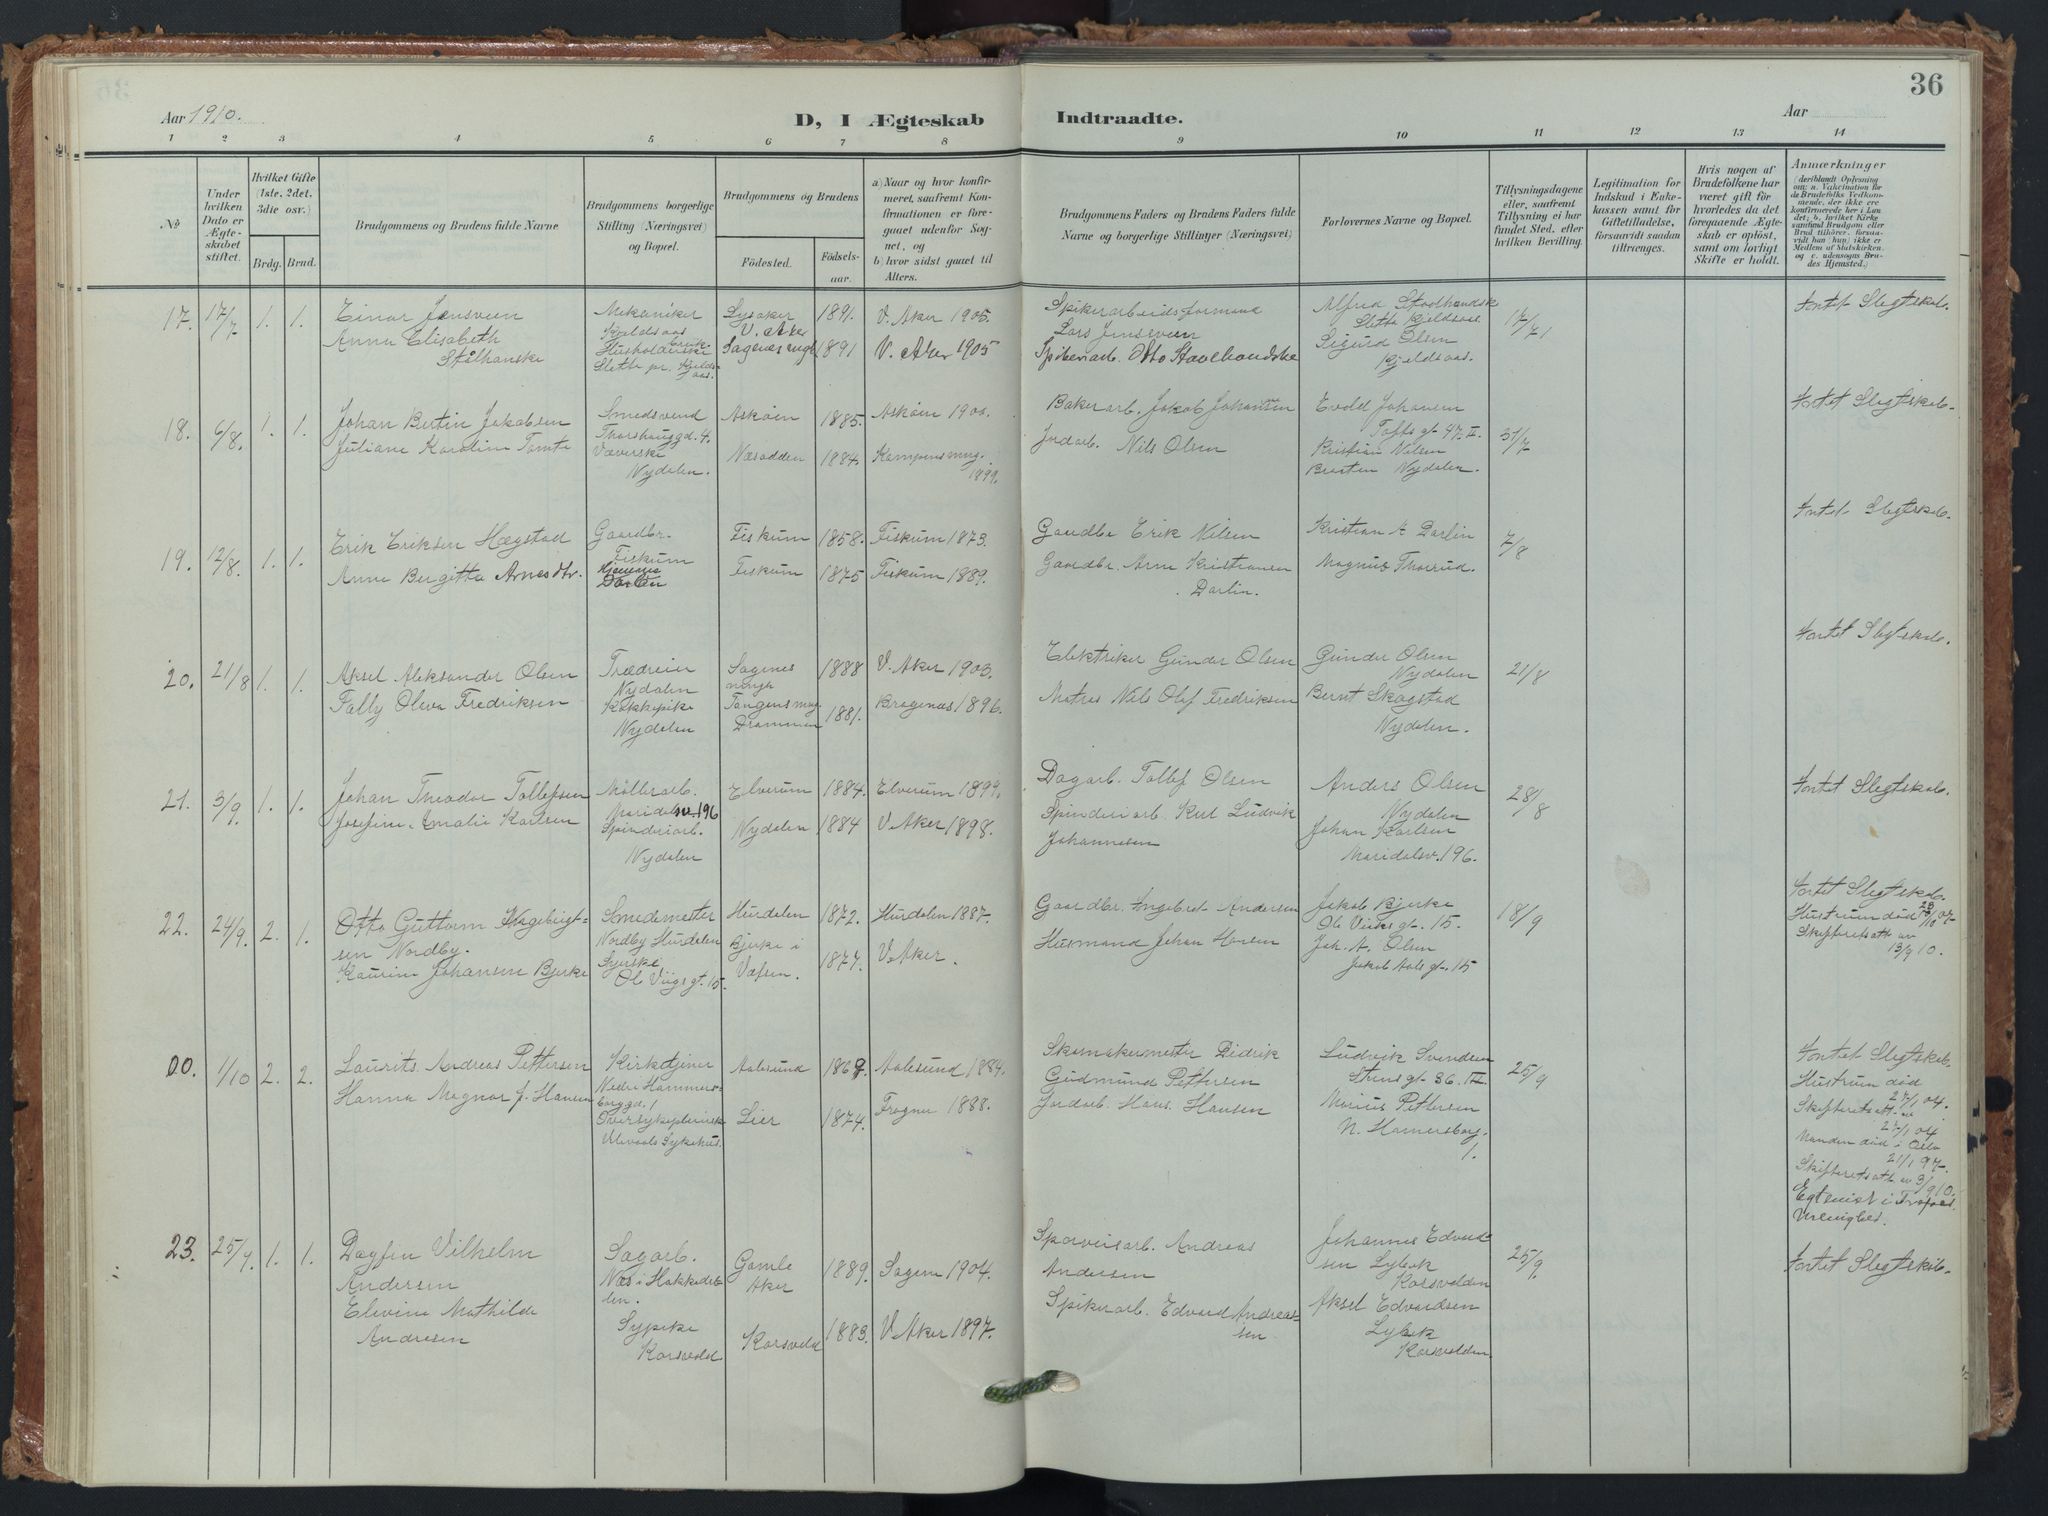 36
Aar 1910.
D, I Ægteskab Indtraadte.
Aar
1 2 3 4 5 6 7 8 9 10 11 12 13 14
No
Under hvilken Dato er Ægteskabet stiftet.
Hvilket Gifte (1ste, 2det, 3die osv.)
Brdg. Brud.
Brudgommens og Brudens fulde Navne
Brudgommens borgerlige Stilling (Næringsvei) og Bopæl.
Brudgommens og Brudens
Födested. Födselsaar.
a) Naar og hvor konfirmeret, saafremt Konfirmationen er foregaaet udenfor Sognet, og
b) hvor sidst gaaet til Alters.
Brudgommens Faders og Brudens Faders fulde Navne og borgerlige Stillinger (Næringsvei)
Forlovernes Navne og Bopæl.
Tillysningsdagene eller, saafremt Tillysning ei har fundet Sted, efter hvilken Bevilling.
Legitimation for Indskud i Enkekassen samt for Giftetilladelse, forsaavidt saadan tiltrænges.
Hvis nogen af Brudefolkene har været gift for hvorledes da det foregaaende Ægteskab er opløst, samt om lovligt Skifte er holdt.
Anmærkninger
(deriblandt Oplysning om: a. Vakcination for de Brudefolks Vedkommende, der ikke ere konfirmerede her i Landet; b. hvilket Kirkesamfund Brudgom eller Brud tilhörer, forsaavidt han (hun) ikke er Medlem af Statskirken, og c. udensogns Brudes Hjemsted.)
17. 17/7 1. 1. Einar Jensveen Mekaniker Lysaker 1891. V. Aker 1905. Spikerarbeidsformand Alfred Staalhandske 17/7 Antet Slegtskab.
Kjeldsaas V. Aker Lars Jensveen Sletta Kjeldsaas
Anna Elisabeth Husholderske Sagenes 1891 V. Aker 1905 Spikerarb. Otto Staalhandske Sigurd Olsen
Stålhanske Sletta pr. Kjeldsaas. Kjeldsaas.
18. 6/8. 1. 1. Johan Bertin Jakobsen Smedsvend Askøin 1885. Askøin 1900. Bakerarb. Jakob Johansen Evald Johansen 31/7 Antet Slegtskab.
Thorshauggd. 4. Tofts gt. 47 II.
Juliane Karoline Tomte Væverske Næsodden 1884. Kampens mng. 1899. Jordarb. Nils Olsen Kristian Nilsen
Nydalen. Braaten Nydalen.
19. 12/8. 1. 1. Erik Eriksen Hægstad Gaardbr. Fiskum 1858. Fiskum 1873. Gaardbr. Erik Nilsen Kristian A Darlin 7/8 Antet Slegtskab.
Fiskum
Anne Bergitte Arnesdtr. Hjemme Fiskum 1875 Fiskum 1889. Gaardbr. Arne Kristiansen Magnus Thorrud.
Darlin Darlin.
20. 21/8 1. 1. Aksel Aleksander Olsen Trædreier Sagenes 1888 V. Aker 1903. Elektriker Gunder Olsen Gunder Olsen 21/8 Antet Slegtskab.
Nydalen Nydalen
Fally Oleva Fredriksen Kokkepike Tangens mng. 1881. Bragenæs 1896. Matros Nils Olaf Fredriksen Bernt Skogstad
Nydalen Drammen Nydalen.
21. 3/9. 1. 1. Johan Theodor Tollefsen Møllerarb. Elverum 1884. Elverum 1899. Dagarb. Tollef Olsen Anders Olsen 28/8 Antet Slegtskab.
Maridalsv. 196 Nydalen
Josefine Amalie Karlsen Spinderiarb. Nydalen 1884 V. Aker 1898. Spinderiarb. Karl Ludvik Johan Karlsen
Nydalen Johannesen Maridalsv. 196.
22. 24/9. 2. 1. Otto Guttorm Ingebrigtsen Nordby. Smedemester Hurdalen 1872. Hurdalen 1887. Gaardbr. Ingebret Andersen Jakob Bjerke 18/9 Antet Slegtskab.
Nordby Hurdalen Ole Viigs gt. 15. Hustrum død
Kaurine Johansen Bjerke Syerske Bjerke i 1877. V. Aker. Husmand Johan Hansen Joh. A. Olsen Skifteretsatt. av 13/9 10.
Ole Viigs gt. 15. Vefsen. Jakob Aals gt. 15
00. 1/10 2. 2. Laurits Andreas Pettersen Kirketjener Aalesund 1869 Aalesund 1884. Skomakermester Didrik Ludvik Svendsen 25/9 Antet Slegtskab.
Nedre Hammersborggd. 1 Gudmund Pettersen Stensgt. 36. III. Hustrum død 27/1 04.
Hanna Magna f. Hansen Oversykepleierske Lier 1874. Frogner 1888. Jordarb. Hans Hansen Marius Pettersen Skifteretsatt. av 27/1 04
Ulevaals Sykehus. N. Hamersborg. 1. Manden død i Oslo 21/1 97.
Skifteretsatt. av 3/9 10.
23. 25/9. 1. 1. Dagfin Vilhelm Sagarb. Gamle 1889. Sagene 1904. Sporveisarb. Andreas Johannes Edvardsen Lybek 25/9. Antet Slegtskab.
Andersen Næs i Hakkedalen. Aker Andersen Korsvolden
Elevine Mathilde Sypike Korsvold 1883. V. Aker 1897. Spikerarb. Edvard Andreassen Aksel Edvardsen
Andresen Korsvold Lybek
Korsvolden.